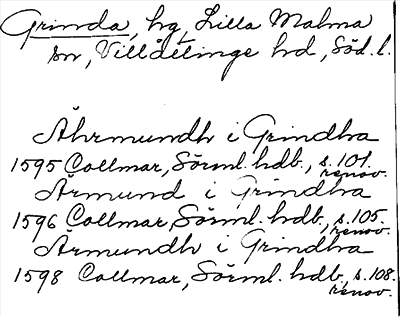 Grinda, hg, Lilla Malma
sn, Villåttinge hd, Söd. l.
Åhrmundh i Grindha
1595 Collmar, Sörml. hdb., s. 101.
renov.
Årmund i Grindha
1596 Collmar, Sörml. hdb, s. 105.
renov.
Årmundh i Grindha
1598 Collmar, Sörml. hdb, s. 108.
renov.